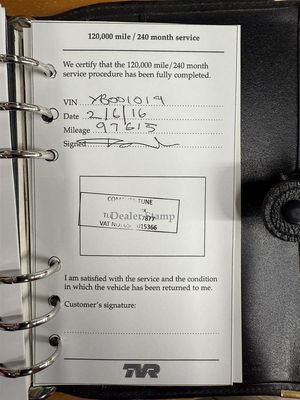 120,000 mile / 240 month service
We certify that the 120,000 mile/240 month
service procedure has been fully completed.
VIN YB001019
Date 2/6/16
Mileage 97615
Signed
TUNE
Dealer Stamp
7877
VAT No. 15366
I am satisfied with the service and the condition
in which the vehicle has been returned to me.
Customer's signature:
TVR